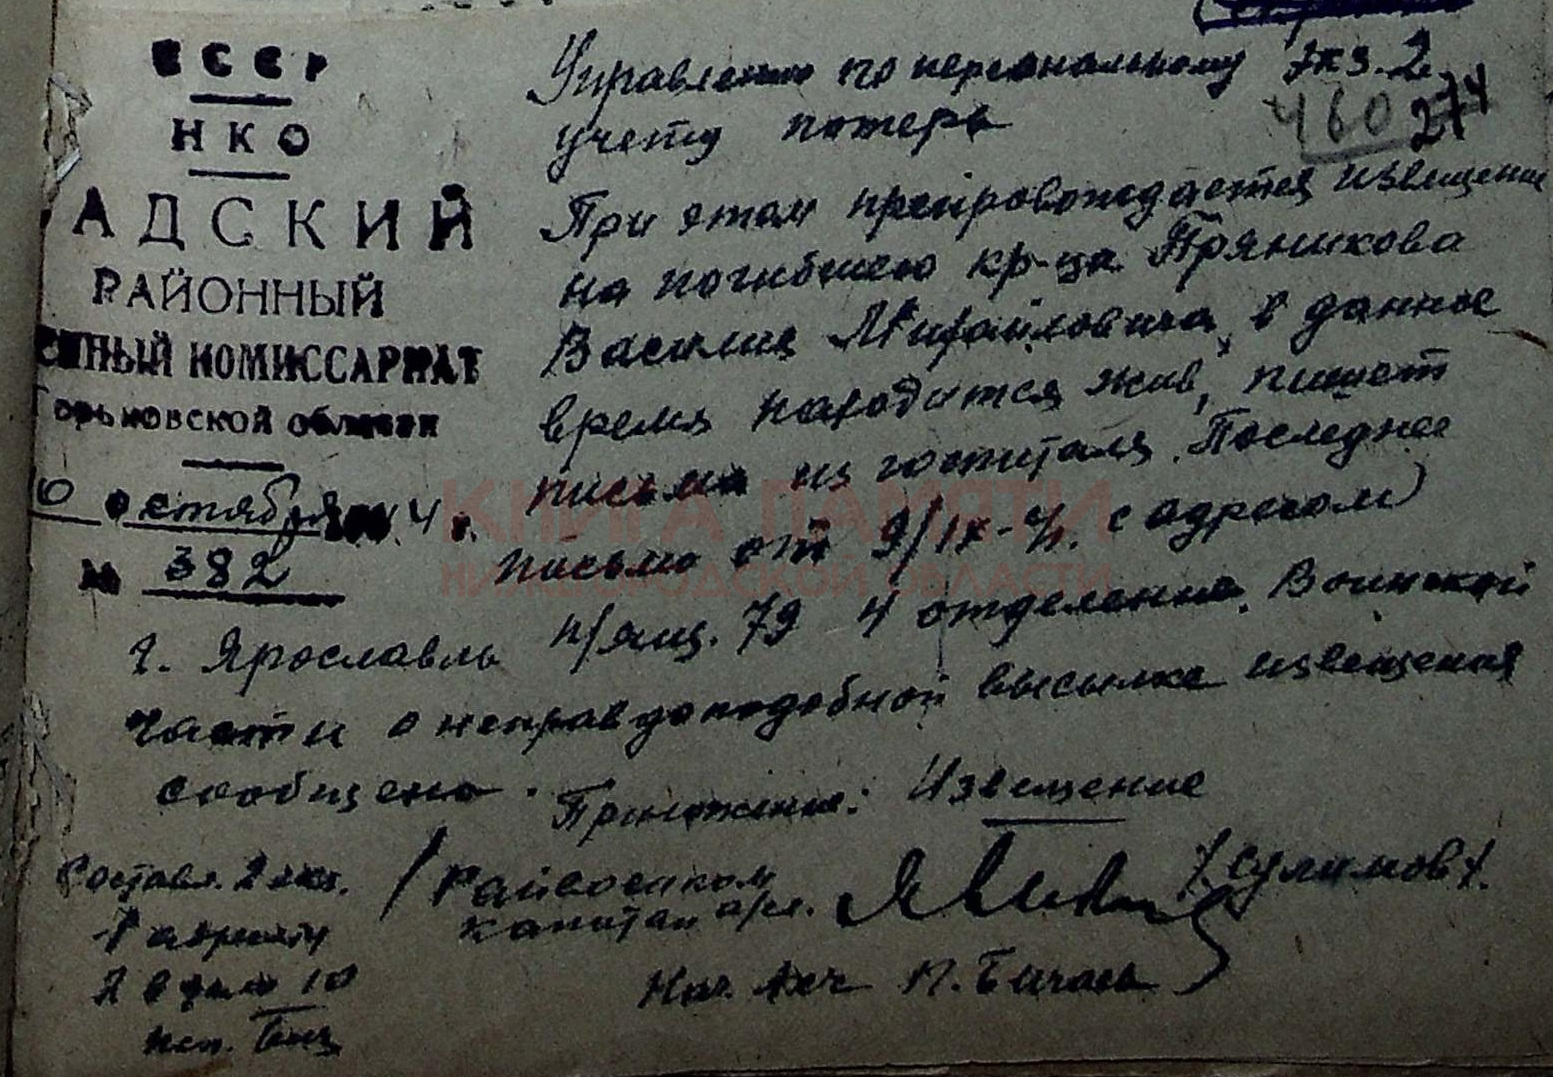 СССР
НКО
АДСКИЙ
РАЙОННЫЙ
ЕННЫЙ КОМИССАРИАТ
Горьковской области
октября 4 г.
№ 382
Управлению по персональному экз. 2
учету потерь
460 274
При этом препровождается извещение
на погибшего кр-ца Пряникова
Василия Михайловича, в данное
время находится жив, пишет
письма из госпиталя. Последнее
письмо от 9/IX-4 г. с адресом
г. Ярославль п/ящ. 79 4 отделение. Воинской
части о неправдоподобной высылке извещения
сообщено.
Приложение: Извещение
Составл. 2 экз.
1 адресату
2 в дело 10
исп.
/Райвоенком
капитан арт. /Сулимов/.
Нач. 4хч П. Бичаев
КНИГА ПАМЯТИ
НИЖЕГОРОДСКОЙ ОБЛАСТИ